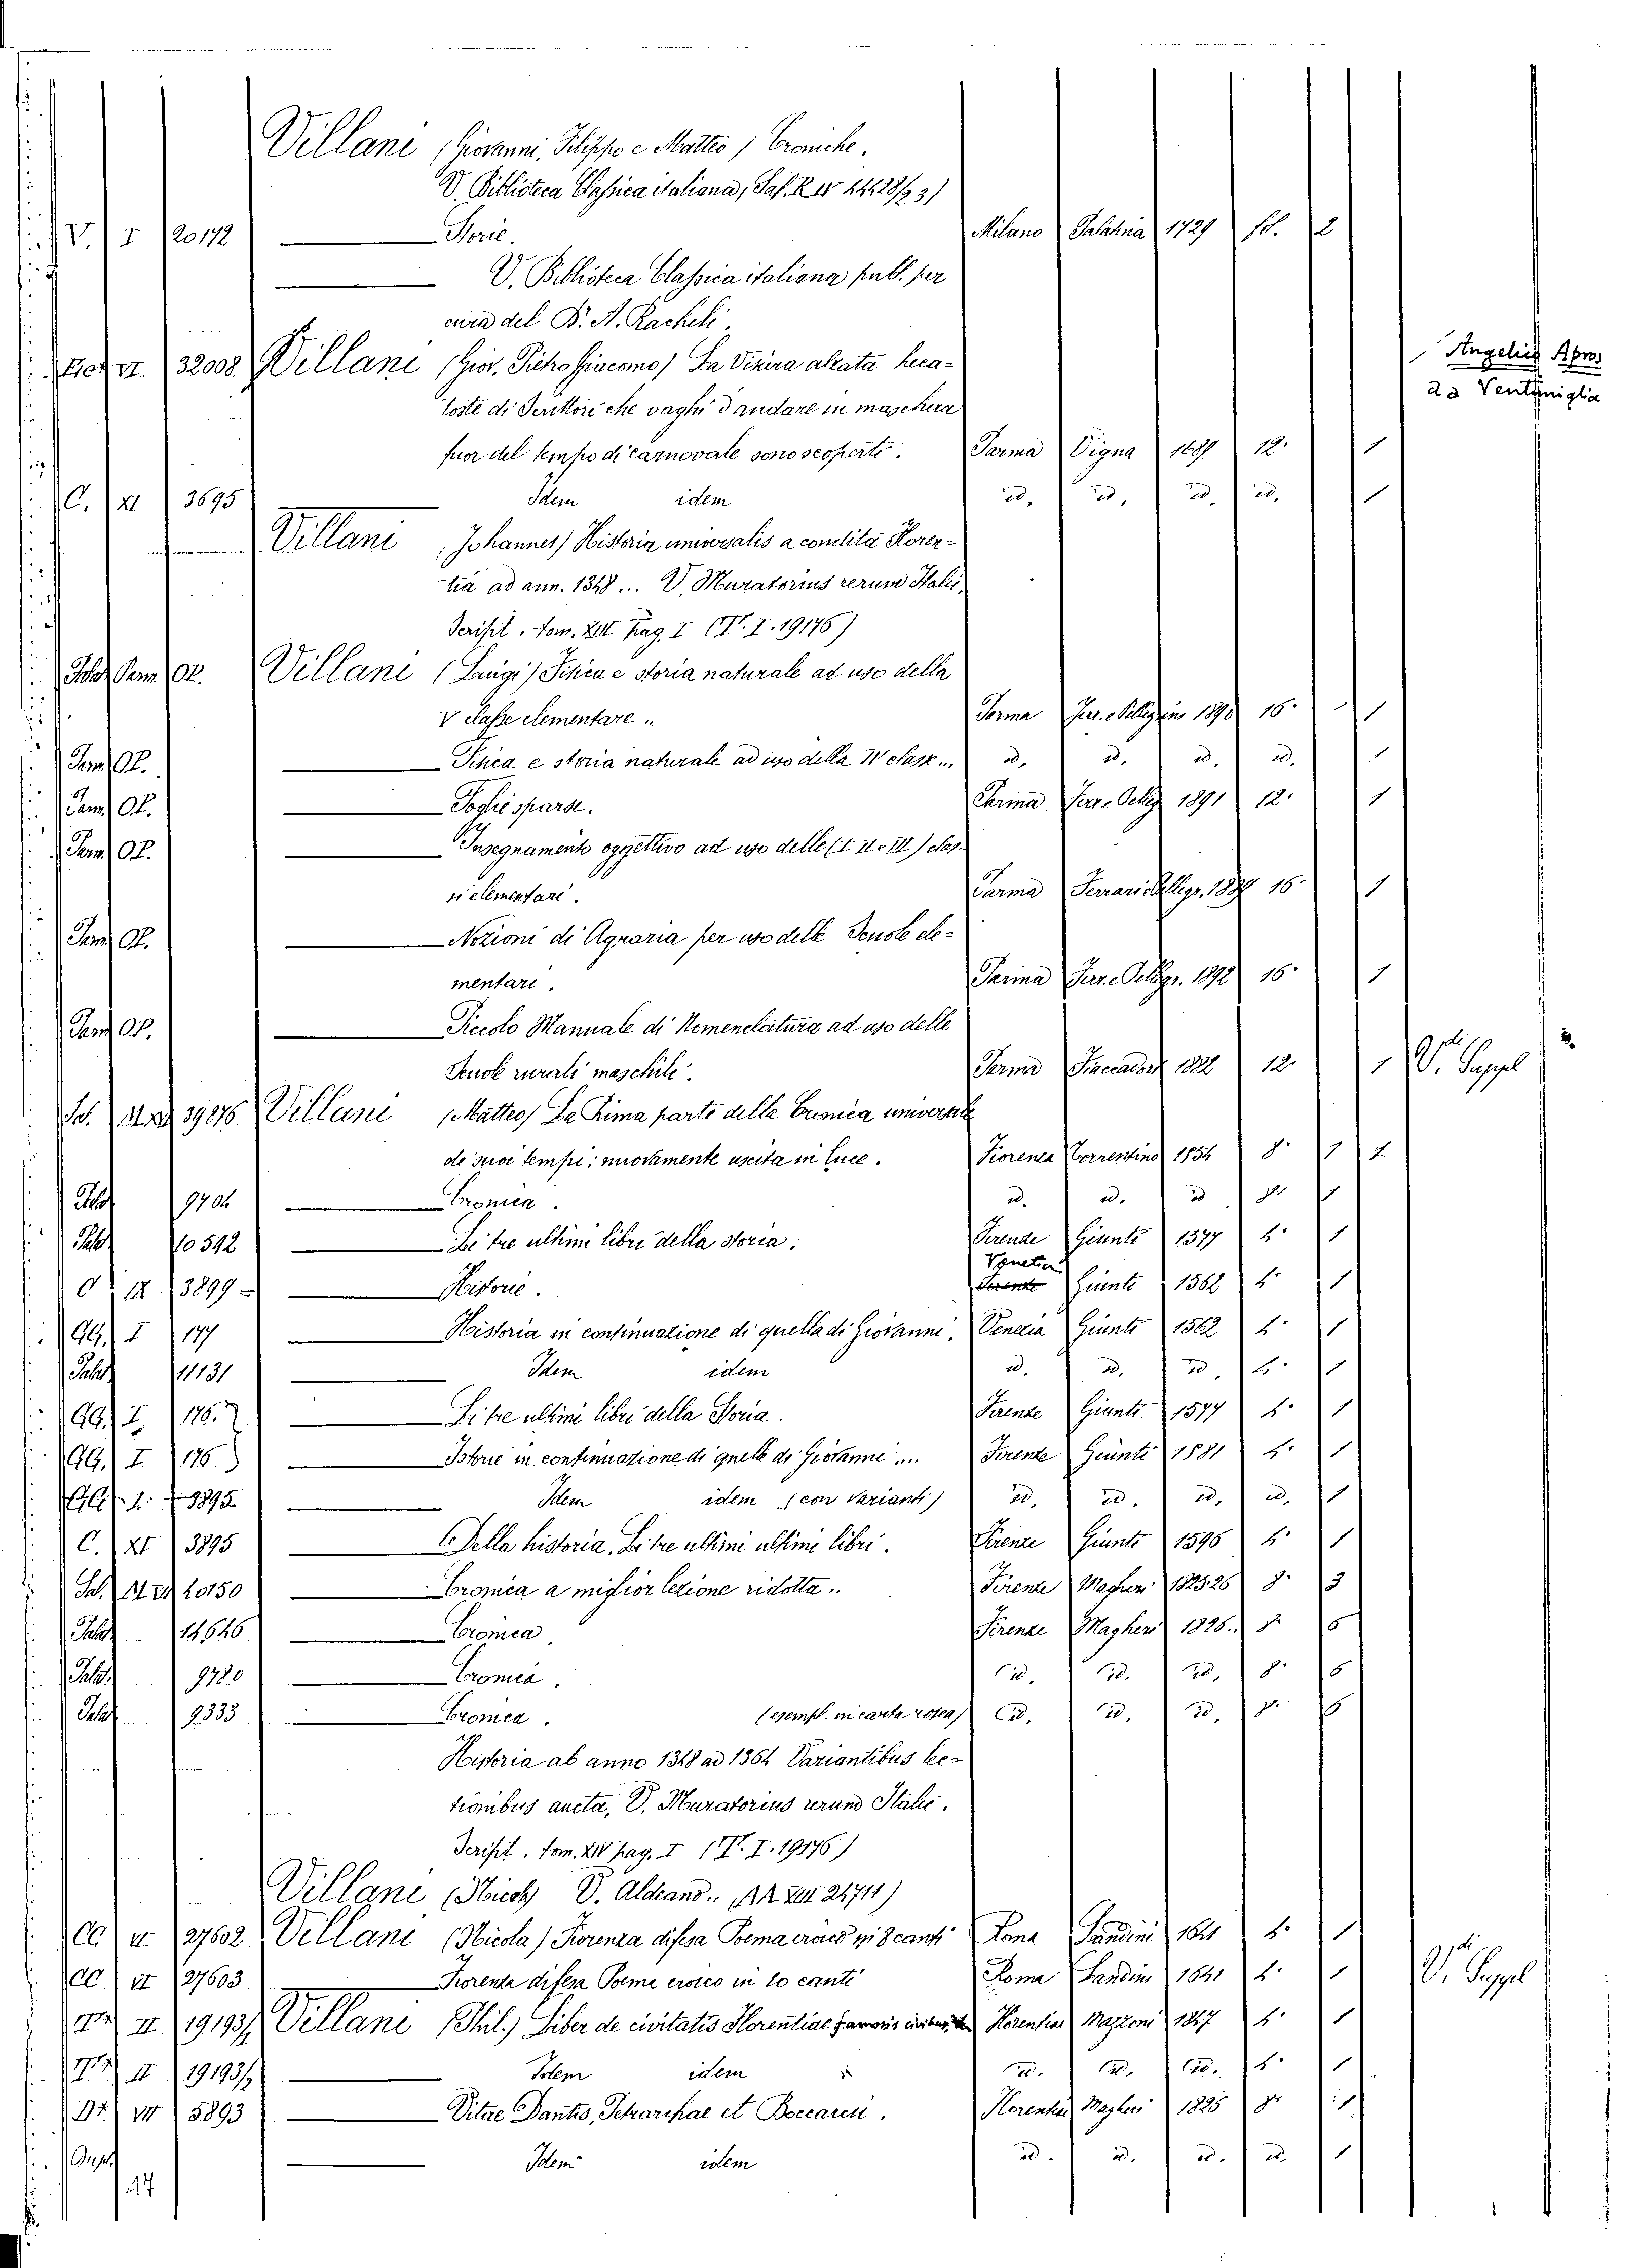 Villani (Giovanni, Filippo e Matteo) Croniche.
V. Biblioteca Classica italiana, Sal. R IV 44428/23)
V. I 20172 Storie. Milano 1729 fol. 2
V. Biblioteca Classica italiana publ. per
cura del D. A. Racheli.
VI. 32008 Villani (Giov. Pietro Giacomo) La Visiera alzata heca-
Angelico Apros
da Ventimiglia
toste di Scrittori che vaghi d'andare in maschera
fuor del tempo di carnovale sono scoperti. Parma Vigna 1689 12° 1
C. XI 3695 Idem idem id. id. id. id. 1
Villani (Johannes) Historia universalis a condita Floren-
tia ad ann. 1348... V. Muratorius rerum Italic.
Script. tom. XIII pag. I (TT. I. 19176)
Parm. OP. Villani (Luigi) Fisica e storia naturale ad uso della
V classe elementare.. Parma Ferr. e Pellegrini 1890 16° 1
Parm. OP. Fisica e storia naturale ad uso della IV classe... id. id. id. id. 1
Parm. OP. Foglie sparse. Parma Ferr. e Pelleg 1891 12° 1
Parm. OP. Insegnamento oggettivo ad uso delle (I. II. e III) clas-
si elementari. Parma Ferrari e Pellegr. 1889 16° 1
Parm. OP. Nozioni di Agraria per uso delle Scuole ele-
mentari. Parma Ferr. e Pellegr. 1892 16° 1
Parm. OP. Piccolo Manuale di Nomenclatura ad uso delle
Scuole rurali maschili. Parma Fiaccadori 1882 12° 1 V. Suppl
Sal. 39876. Villani (Matteo) La Prima parte della Cronica universale
de suoi tempi: nuovamente uscita in luce. Fiorenza Torrentino 1554 8° 1 1
Palat 9704 Cronica. id. id. id 8° 1
Palat 10592 Li tre ultimi libri della storia. Firenze Giunti 1577 4° 1
C. IX 3899 Historie. Venetia Giunti 1562 4° 1
GG. I 177 Historia in continuazione di quella di Giovanni. Venezia Giunti 1562 4° 1
Palat 11131 Idem idem id. id. id. 4° 1
GG. I. 176. Li tre ultimi libri della Storia. Firenze Giunti 1577 4° 1
GG. I 176 Istorie in continuazione di quelle di Giovanni.... Firenze Giunti 1581 4° 1
GG. I. 9895 Idem idem (con varianti) id. id. id. id. 1
C. XI 3895 Della historia. Li tre ultimi ultimi libri. Firenze Giunti 1596 4° 1
Sal. 40150 Cronica a miglior lezione ridotta.. Firenze Magheri 1825-26 8° 3
Palat 14646 Cronica. Firenze Magheri 1826.. 8° 6
Palat. 9780 Cronica. id. id. id. 8° 6
Palat 9333 Cronica. (esempl. in carta rosea) id. id. id. 8° 6
Historia ab anno 1348 ad 1364 Variantibus lec-
tionibus aucta, V. Muratorius rerum Italic.
Script. tom. XIV pag. I (TT. I. 19176)
Villani (Nicch) V. Aldeand.. AA XIII 24711)
CC VI 27602 Villani (Nicola) Fiorenza difesa Poema eroico in 8 canti Roma Landini 1641 4° 1
CC VI 27603 Fiorenza difesa Poema eroico in 10 canti Roma Landini 1641 4° 1 V. Suppl
TT II 19193/1 Villani (Phil.) Liber de civitatis Florentiae famosis civibus Florentiae Mazzoni 1847 4° 1
TT II. 19193/2 Idem idem id. id. id. 4° 1
VII 5893 Vitae Dantis, Petrarchae et Boccaccii. Florentiae Magheri 1826 8° 1
Idem idem id. id. id. id. 1